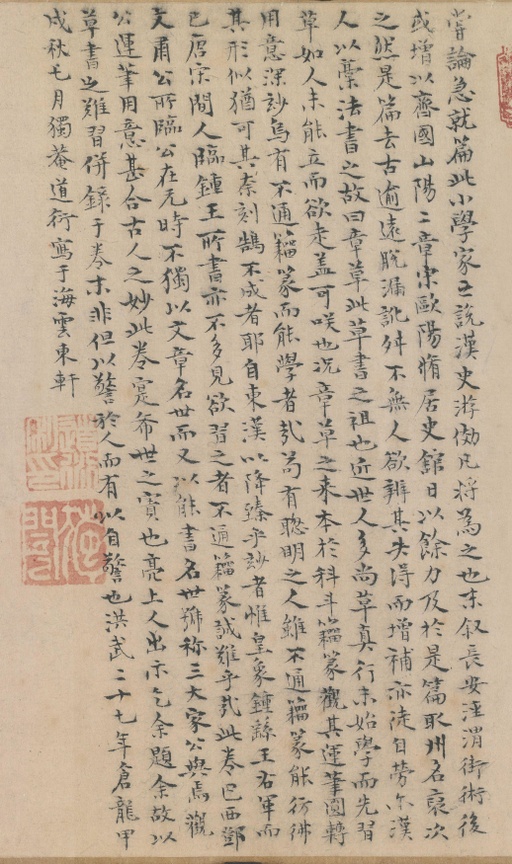 嘗論急就篇此小學家之說漢史游倣凡將為之也末叙長安涇渭街術後
或增以齊國山陽二章宋歐陽脩居史館日以餘力及於是篇取州名裒次
之然是篇去古逾遠脫漏訛舛不無人欲辨其失得而增補亦徒自勞尓漢
人以藁法書之故曰章草此草書之祖也近世人多尚草真行未始學而先習
草如人未能立而欲走盖可咲也况章草之来本於科斗籀篆觀其運筆圓轉
用意深玅烏有不通籀篆而能學者㢤苟有聰明之人雖不通籀篆能彷彿
其形似猶可其柰刻鵠不成者耶自東漢以降臻乎玅者惟皇象鍾繇王右軍而
已唐宋間人臨鍾王所書亦不多見欲習之者不通籀篆誠難乎㢤此卷巴西鄧
文肅公所臨公在元時不獨以文章名世而又以能書名世號称三大家公與焉觀
公運筆用意甚合古人之妙此卷寔希世之寳也亮上人出示乞余題余故以
草書之難習併錄于卷末非但以警於人而有以自警也洪武二十七年倉龍甲
戌秋七月獨菴道衍寫于海雲東軒